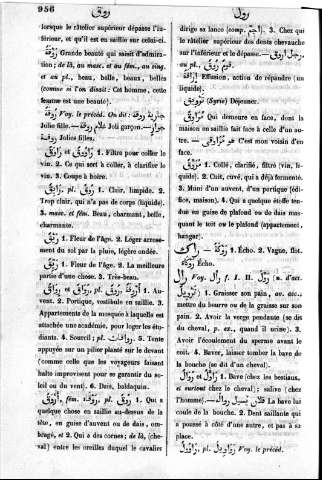 956
روق
رول
lorsque le râtelier supérieur dépasse l'in-
férieur, et qu'il est en saillie sur celui-ci.
رُوقَة Grande beauté qui saisit d'admira-
tion; de là, au masc. et au fém., au sing.
et au pl., beau, belle, beaux, belles
(comme si l'on disait: Cet homme, cette
femme est une beauté).
رُوقَة Voy. le précéd. On dit: جارية روقة
Jolie fille. غلام روقة Joli garçon. جوار
روقة Jolies filles.
1. Filtre pour coller le
vin. 2. Ce qui sert à coller, à clarifier le
vin. 3. Coupe à boire.
رَائِق, pl. رُوق 1. Clair, limpide. 2.
Trop clair, qui n'a pas de corps (liquide).
3. masc. et fém. Beau, charmant, belle,
charmante.
1. Fleur de l'âge. 2. Léger arrose-
ment du sol par la pluie, légère ondée.
1. Fleur de l'âge. 2. La meilleure
partie d'une chose. 3. Très-beau.
1. Au-
vent. 2. Portique, vestibule en saillie. 3.
Appartements de la mosquée à laquelle est
attachée une académie, pour loger les étu-
diants. 4. Sourcil; pl. رواقات. 5. Tente
appuyée sur un pilier placé sur le devant
(comme celle que les voyageurs faisant
halte improvisent pour se garantir du so-
leil ou du vent). 6. Dais, baldaquin.
أَرْوَق, fém. رَوْقَاء, pl. رُوق 1. Qui a
quelque chose en saillie au-dessus de la
tête, en guise d'auvent ou de dais, om-
bragé, et 2. Qui a des cornes; de là, (che-
val) entre les oreilles duquel le cavalier
dirige sa lance (comp. أجم). 3. Chez qui
le râtelier supérieur des dents chevauche
sur l'inférieur et le dépasse. — رجل أروق
au pl. قوم روق.
إِرَاقَة Effusion, action de répandre (un
liquide).
تَرْوِيقَة (Syrie) Déjeuner.
مُرَاوِق Qui demeure en face, dont la
maison en saillie fait face à celle d'un au-
tre. هو مراوقى C'est mon voisin d'en
face.
مُرَوَّق 1. Collé, clarifié, filtré (vin, li-
quide). 2. Cuit, cuvé, qui a déjà fermenté.
3. Muni d'un auvent, d'un portique (édi-
fice, maison). 4. Qui a quelque étoffe ten-
due en guise de plafond ou de dais mas-
quant le toit ou le plafond (appartement,
hangar).
1. Écho. 2. Vague, flot.
Écho.
رَالَ Voy. رول f. I. II. رَوَّل (n. d'act.
1. Graisser son pain, av. acc.,
mettre du beurre ou de la graisse sur son
pain. 2. Avoir la verge pendante (se dit
du cheval, p. ex., quand il urine). 3.
Avoir l'écoulement du sperme avant le
coït. 4. Baver, laisser tomber la bave de
la bouche (se dit d'un cheval).
1. Bave (chez les bestiaux,
et surtout chez le cheval); salive (chez
l'homme). — فلان يسيل رواله La bave lui
coule de la bouche. 2. Dent saillante qui
a poussé à côté d'une autre, et pas à sa
place.
رَاوُول, pl. رواويل Voy. le précéd.